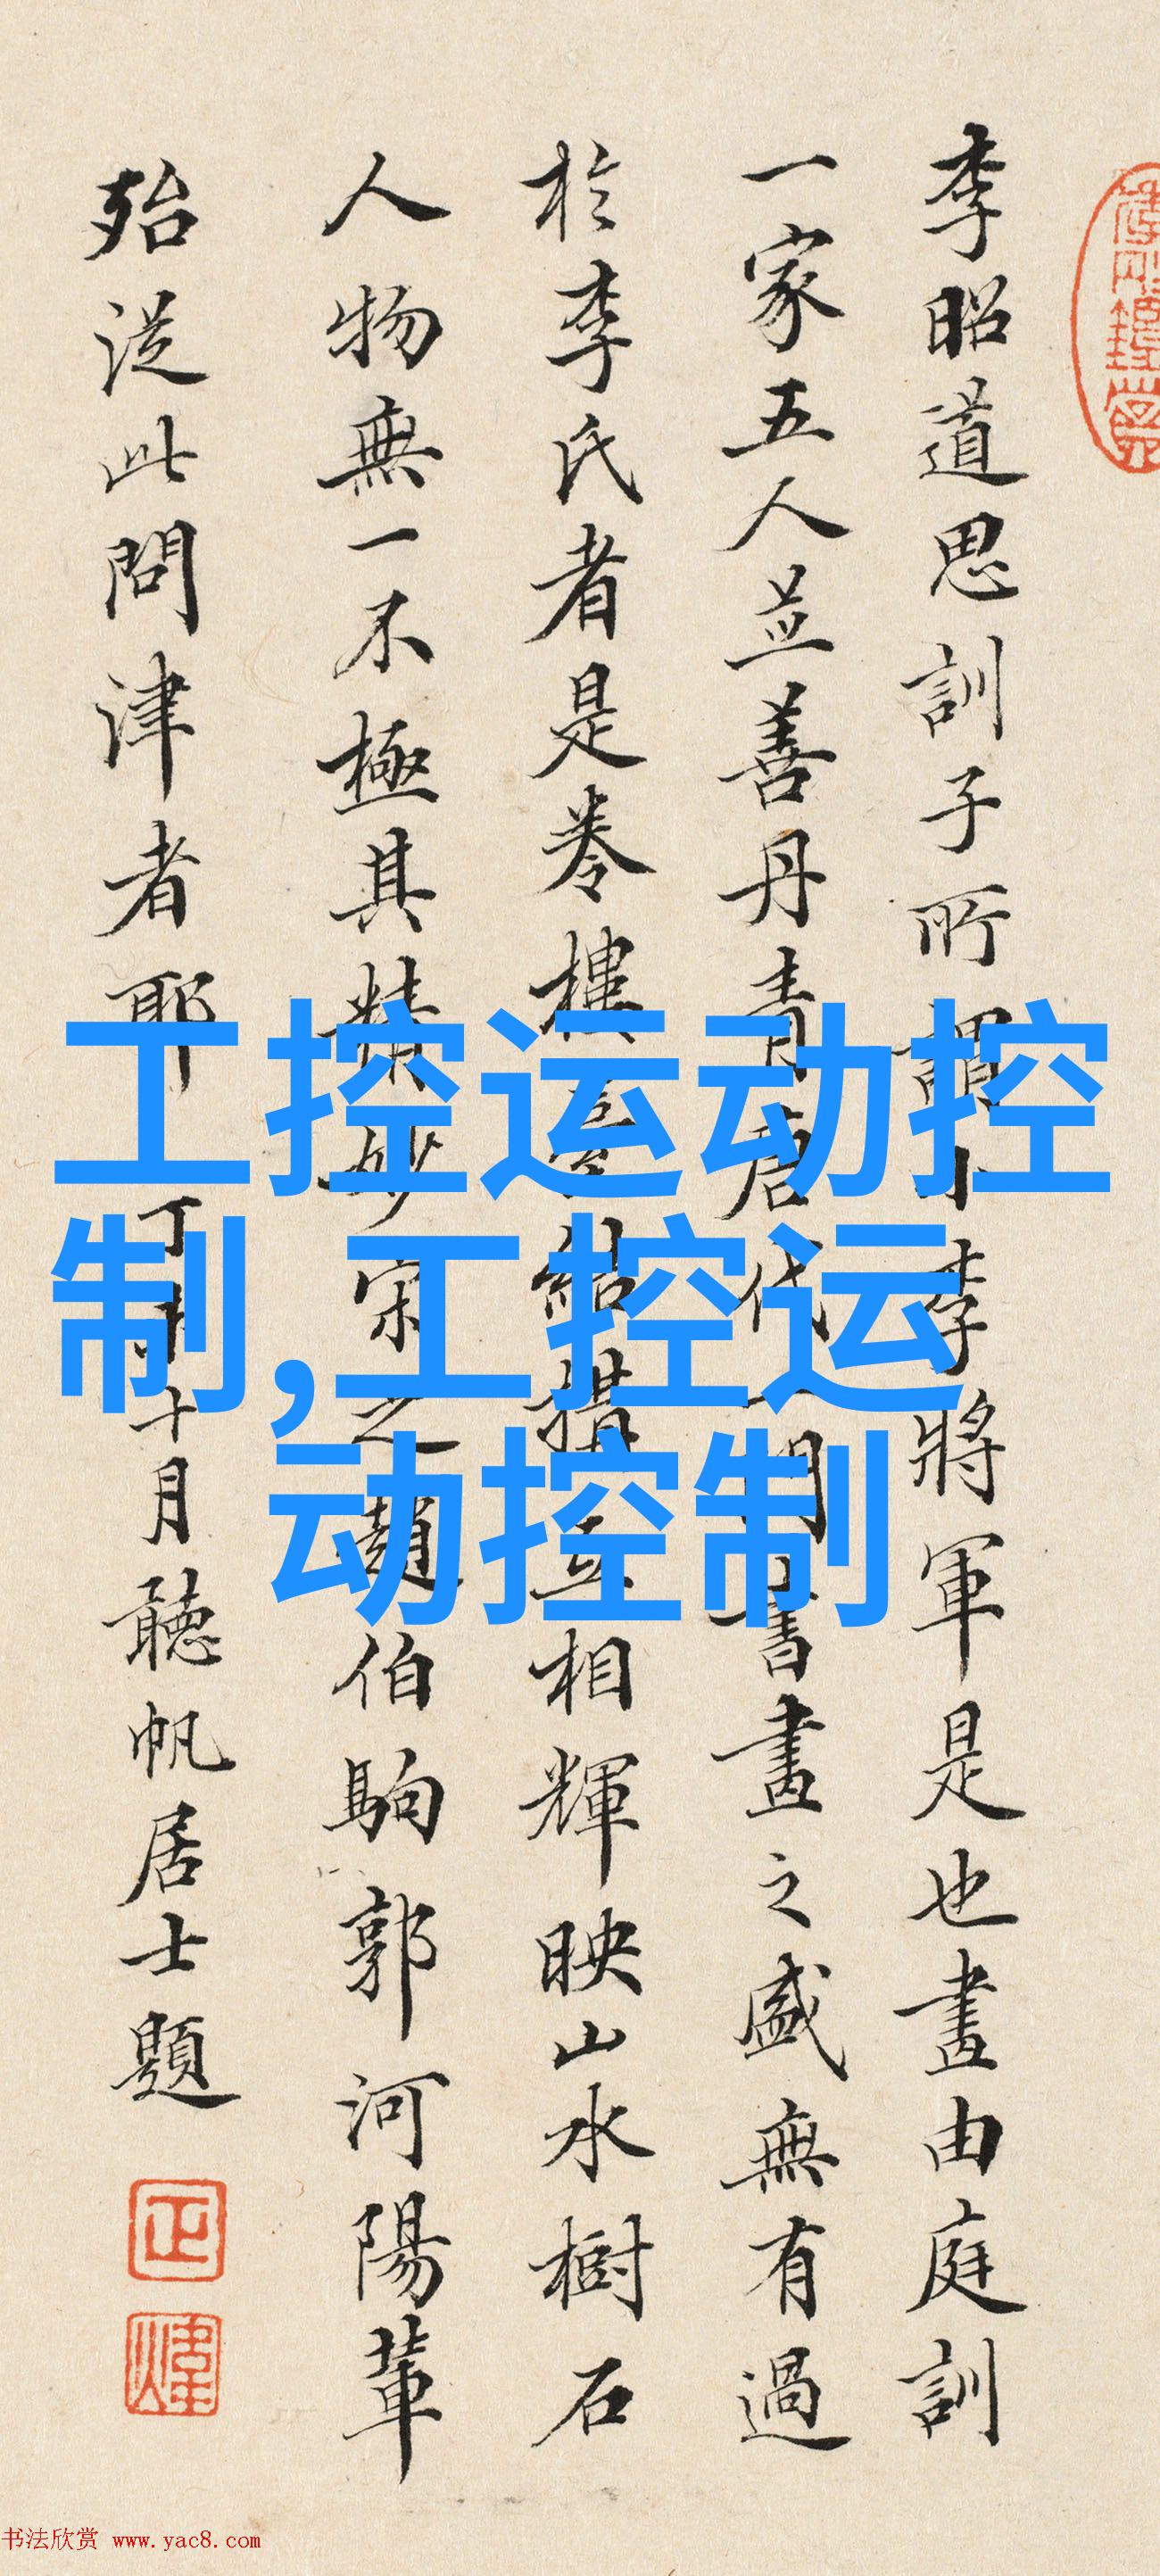 李昭道思訓子所謂小李將軍是也畫由庭訓
一家五人並善丹青唐代一門書畫之盛無有過
於李氏者是卷樓臺結搆並相輝映山水樹石
人物無一不極其精妙宋之趙伯駒郭河陽輩
殆從此問津者耶
丁 十月聽帆居士題
工控运动控
制,工控运
动控制
书法欣赏 www.yac8.com